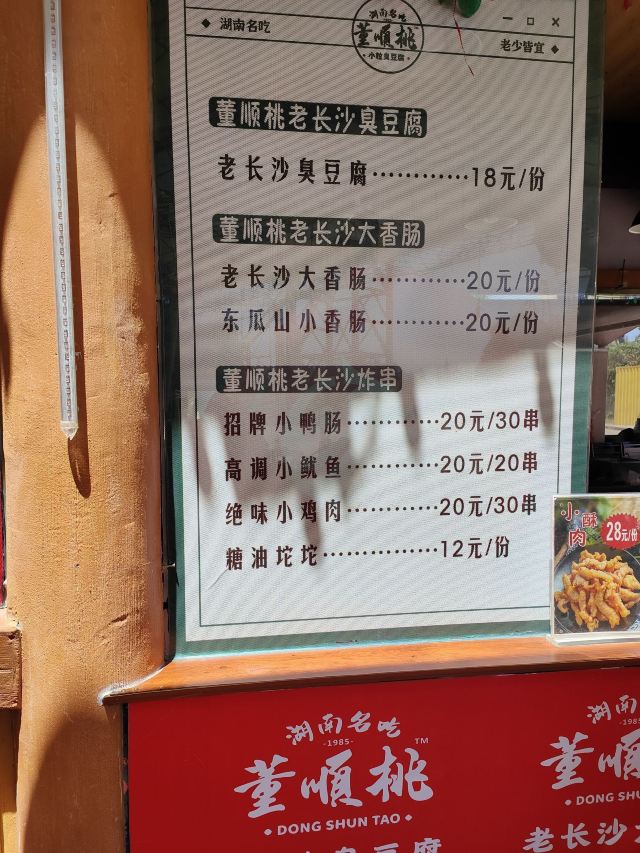 湖南名吃
湖南名吃
董顺桃
·小粒臭豆腐·
老少皆宜
董顺桃老长沙臭豆腐
老长沙臭豆腐············18元/份
董顺桃老长沙大香肠
老长沙大香肠············20元/份
东瓜山小香肠············20元/份
董顺桃老长沙炸串
招牌小鸭肠············20元/30串
高调小鱿鱼············20元/20串
绝味小鸡肉············20元/30串
糖油坨坨···············12元/份
小酥肉
28元/份
湖南名吃
-1985-
董順桃™
• DONG SHUN TAO •
臭豆腐
湖南
-1985
董順
• DONG SHU
老长沙